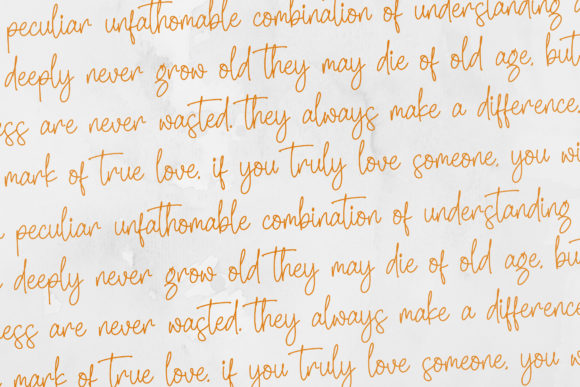 peculiar unfathomable combination of understanding
deeply never grow old they may die of old age, but
ess are never wasted. they always make a difference.
mark of true love. if you truly love someone, you wi
peculiar unfathomable combination of understanding
deeply never grow old they may die of old age, but
ess are never wasted. they always make a difference
mark of true love. if you truly love someone, you wi